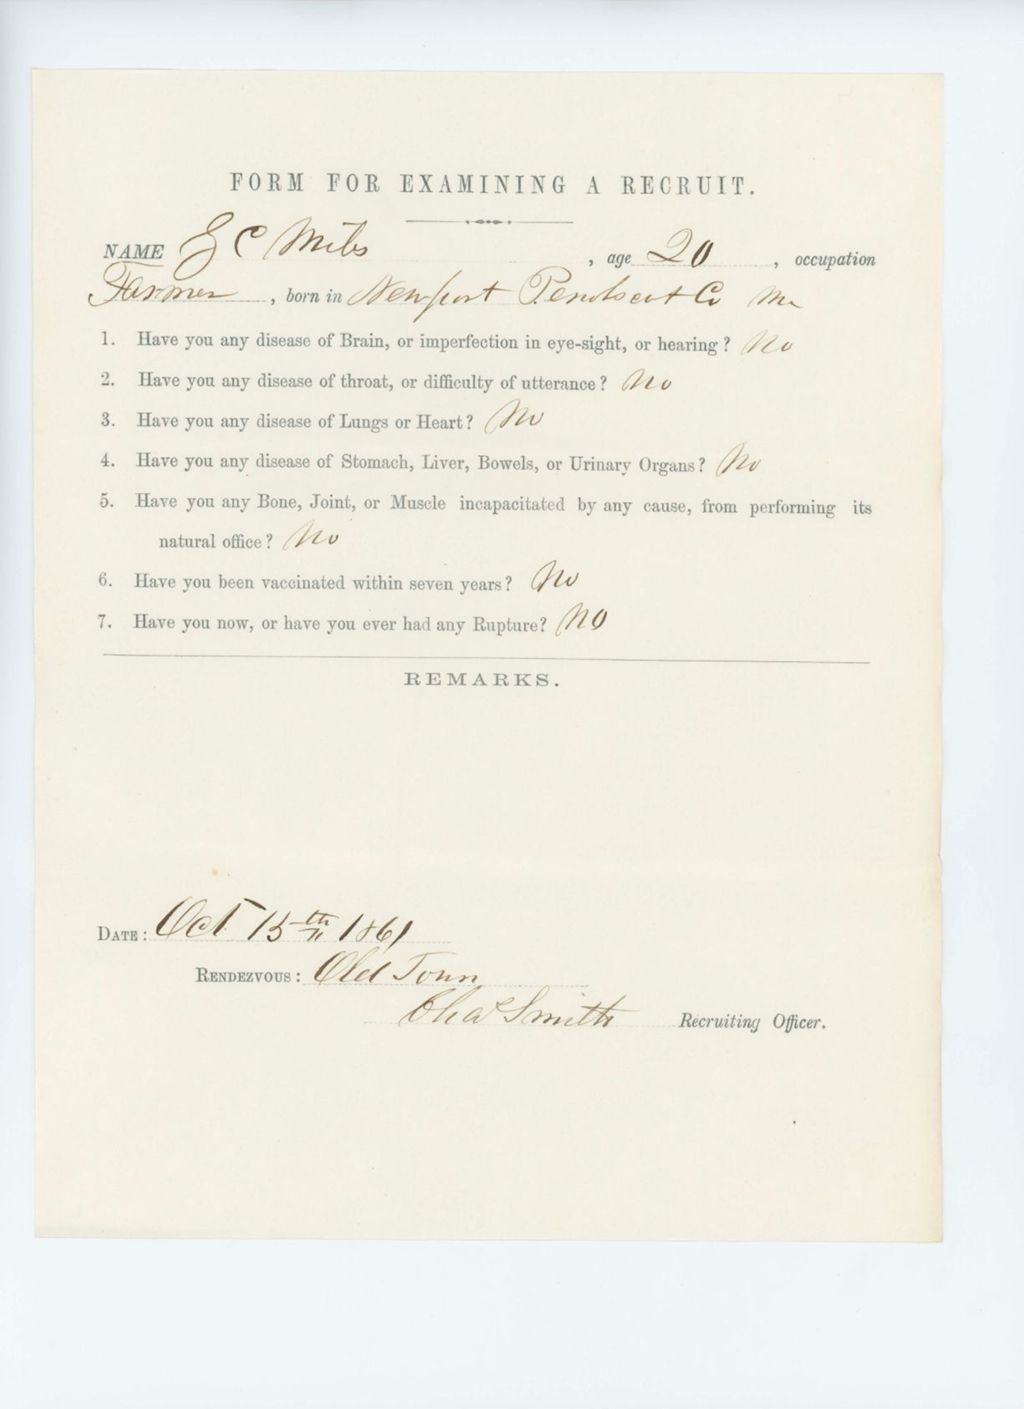 FORM FOR EXAMINING A RECRUIT.
NAME G C Miles, age 20, occupation
Farmer, born in Newport Penobscot Co Me
1. Have you any disease of Brain, or imperfection in eye-sight, or hearing? No
2. Have you any disease of throat, or difficulty of utterance? No
3. Have you any disease of Lungs or Heart? No
4. Have you any disease of Stomach, Liver, Bowels, or Urinary Organs? No
5. Have you any Bone, Joint, or Muscle incapacitated by any cause, from performing its
natural office? No
6. Have you been vaccinated within seven years? No
7. Have you now, or have you ever had any Rupture? NO
REMARKS.
DATE: Oct 15th 1861
RENDEZVOUS: Old Town
Chas Smith Recruiting Officer.